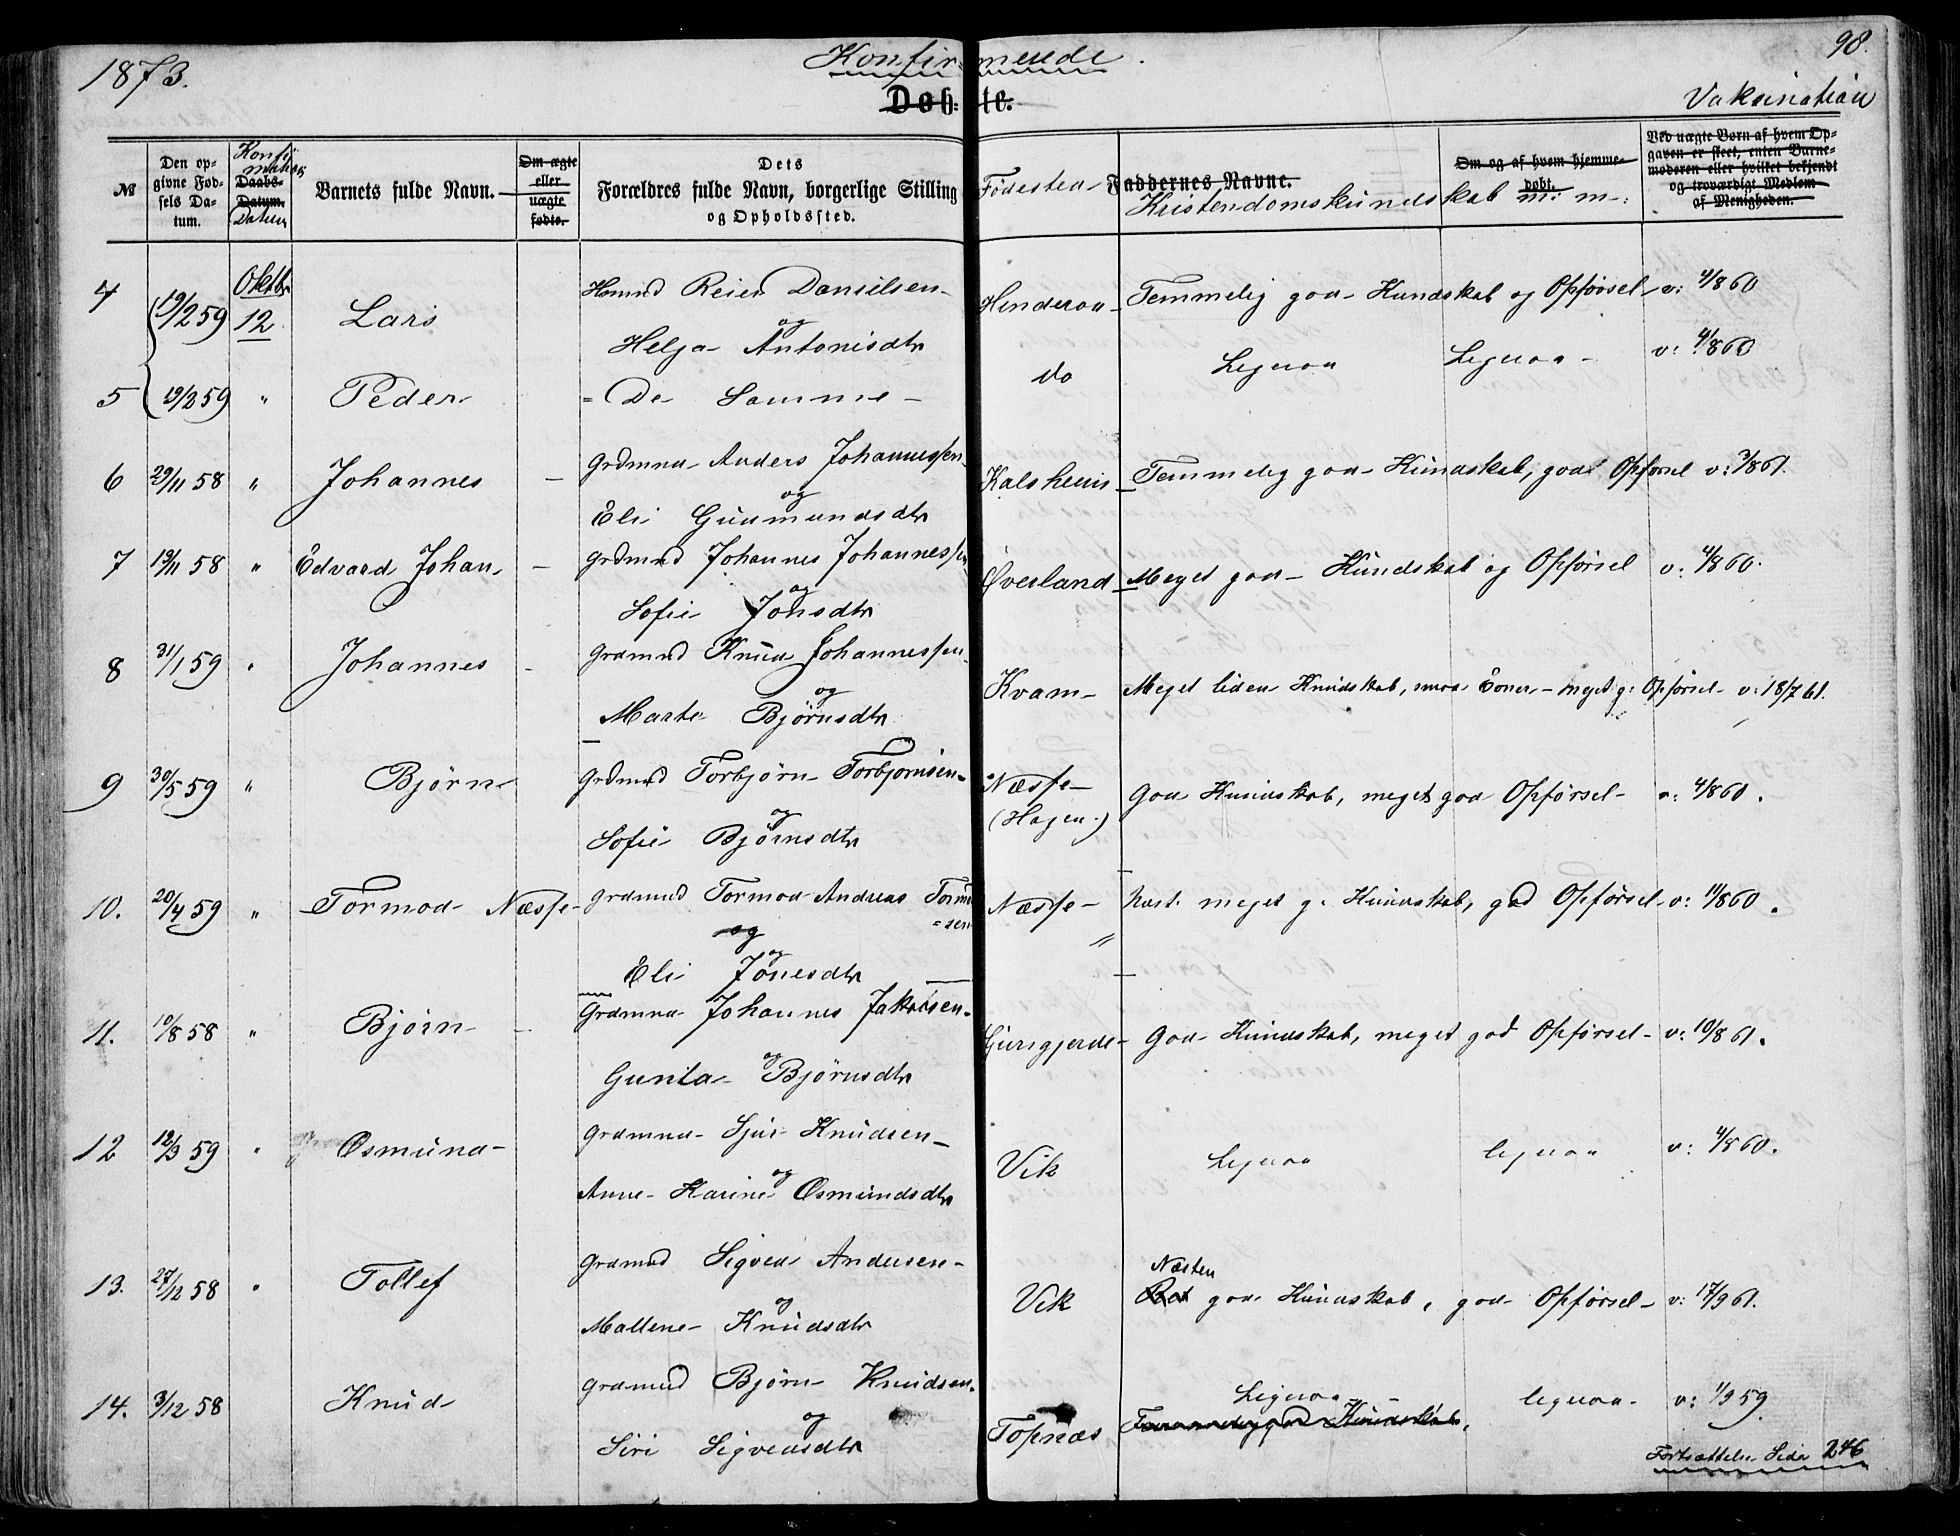 1873.
Konfirmerede.
98.
Døbte.
Vaksination
№
Den opgivne Fødsels Datum.
Konfirmations
Daabs-Datum.
Datum
Barnets fulde Navn.
Om ægte eller uægte fødte.
Dets
Forældres fulde Navn, borgerlige Stilling
og Opholdssted.
Fødested
Faddernes Navne.
Kristendomskundskab m. m.
Om og af hvem hjemmedøbt.
Ved uægte Børn af hvem Opgaven er skeet, enten Barnemoderen eller hvilket bekjendt og troværdigt Medlem af Menigheden.
4 19/2 59 Oktbr 12 Lars Reier Danielsen og Helga Antonisdtr Hinderaa Temmelig god Kundskab og Opførsel v: 4/8 60
5 19/2 59 " Peder = De Samme - do Ligesaa Ligesaa v: 4/8 60
6 29/11 58 " Johannes - Grdmnd Anders Johannessen og Eli Gudmundsdtr Kalsheim Temmelig god Kundskab, god Opførsel v: 3/8 61.
7 19/11 58 " Edvard Johan - Grdmnd Johannes Johannessen og Sofie Jonsdtr Øverland Meget god Kundskab og Opførsel v: 4/8 60.
8 31/1 59 " Johannes - Grdmnd Knud Johannessen og Marte Bjørnsdtr Kvam Meget liden Kundskab, smaa Evner - meget g. Opførsel v: 18/7 61.
9 30/5 59 " Bjørn Grdmnd Torbjørn Torbjørnsen og Sofie Bjørnsdtr Næsse (Hagen) God Kundskab, meget god Opførsel v: 4/8 60.
10. 20/4 59 " Tormod Næsse Grdmnd Tormod Andreas Tormodsen og og Eli Jonesdtr Næsse " meget g. Kundskab, god Opførsel v: 11/8 60.
11. 10/8 58 " Bjørn - Grdmnd Johannes Jakobsen og Gunla Bjørnsdtr God Kundskab, meget god Opførsel v: 10/8 61.
12 12/3 59 " Osmund Grdmnd Sjur Knudsen og Anne Karine Osmundsdtr Vik Ligesaa ligesaa v: 4/8 60.
13. 27/12 58 " Tollef Grdmnd Sigved Andersen og Mallene Knudsdtr Vik Næsten god Kundskab, god Opførsel v: 17/9 61.
14. 3/12 58 Knud Grdmnd Bjørn Knudsen og Siri Sigvedsdtr Topnæs Ligesaa ligesaa v: 1/9 59.
Temmelig god Kundskab,
Fortsættelse Side 246